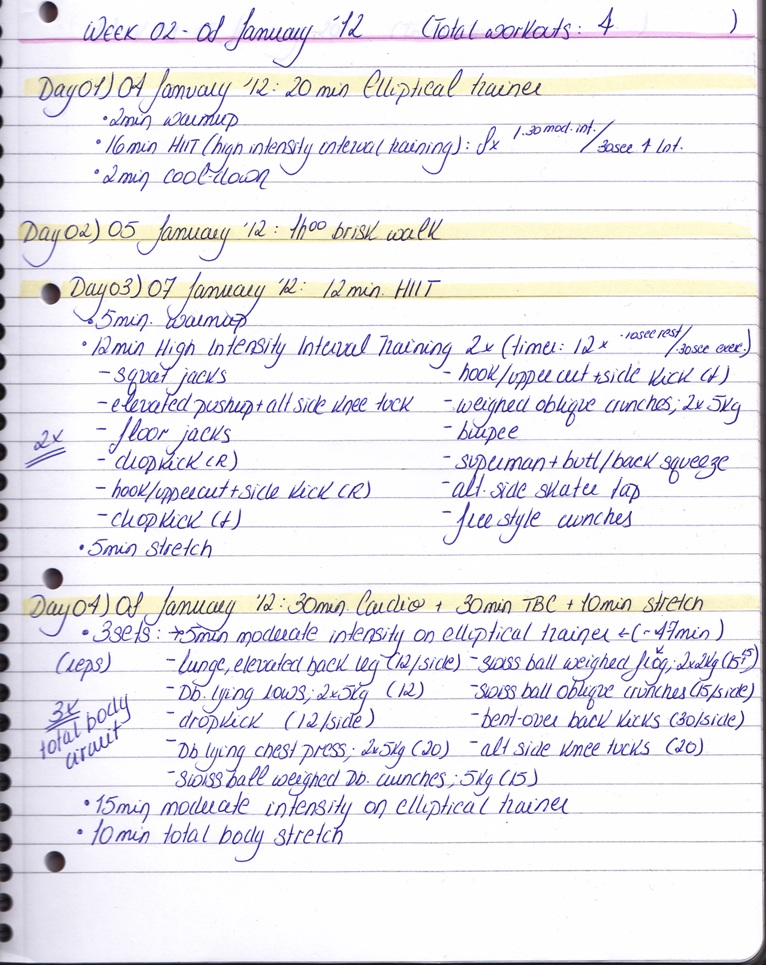 Week 02 - 08 January '12 (Total workouts: 4 )
Day01) 04 January '12: 20 min Elliptical trainer
• 2min warmup
• 16min HIIT (high intensity interval training): 8x 1.30mod.int./30sec ↑ Int.
• 2min cool-down
Day02) 05 January '12: 1h00 brisk walk
Day03) 07 January '12: 12min. HIIT
• 5min. warmup
• 12min High Intensity Interval Training 2x (timer: 12x ·10sec rest/·30sec exer.)
- squat jacks - hook/uppercut+side kick (L)
- elevated pushup+alt side knee tuck - weighed oblique crunches; 2x5kg
2x - floor jacks - burpee
- chopkick (R) - superman+butt/back squeeze
- hook/uppercut+side kick (R) - alt. side skater tap
- chopkick (L) - free style crunches
• 5min stretch
Day04) 08 January '12: 30min Cardio + 30min TBC + 10min stretch
• 3sets: →5min moderate intensity on elliptical trainer ← (~47min)
(reps) - lunge, elevated back leg (12/side) - swiss ball weighed frog; 2x2kg (15+15)
- Db. lying rows; 2x5kg (12) - swiss ball oblique crunches (15/side)
3x total body circuit - dropkick (12/side) - bent-over back kicks (30/side)
- Db lying chest press; 2x5kg (20) - alt side knee tucks (20)
- swiss ball weighed Db. crunches; 5kg (15)
• 15min moderate intensity on elliptical trainer
• 10min total body stretch